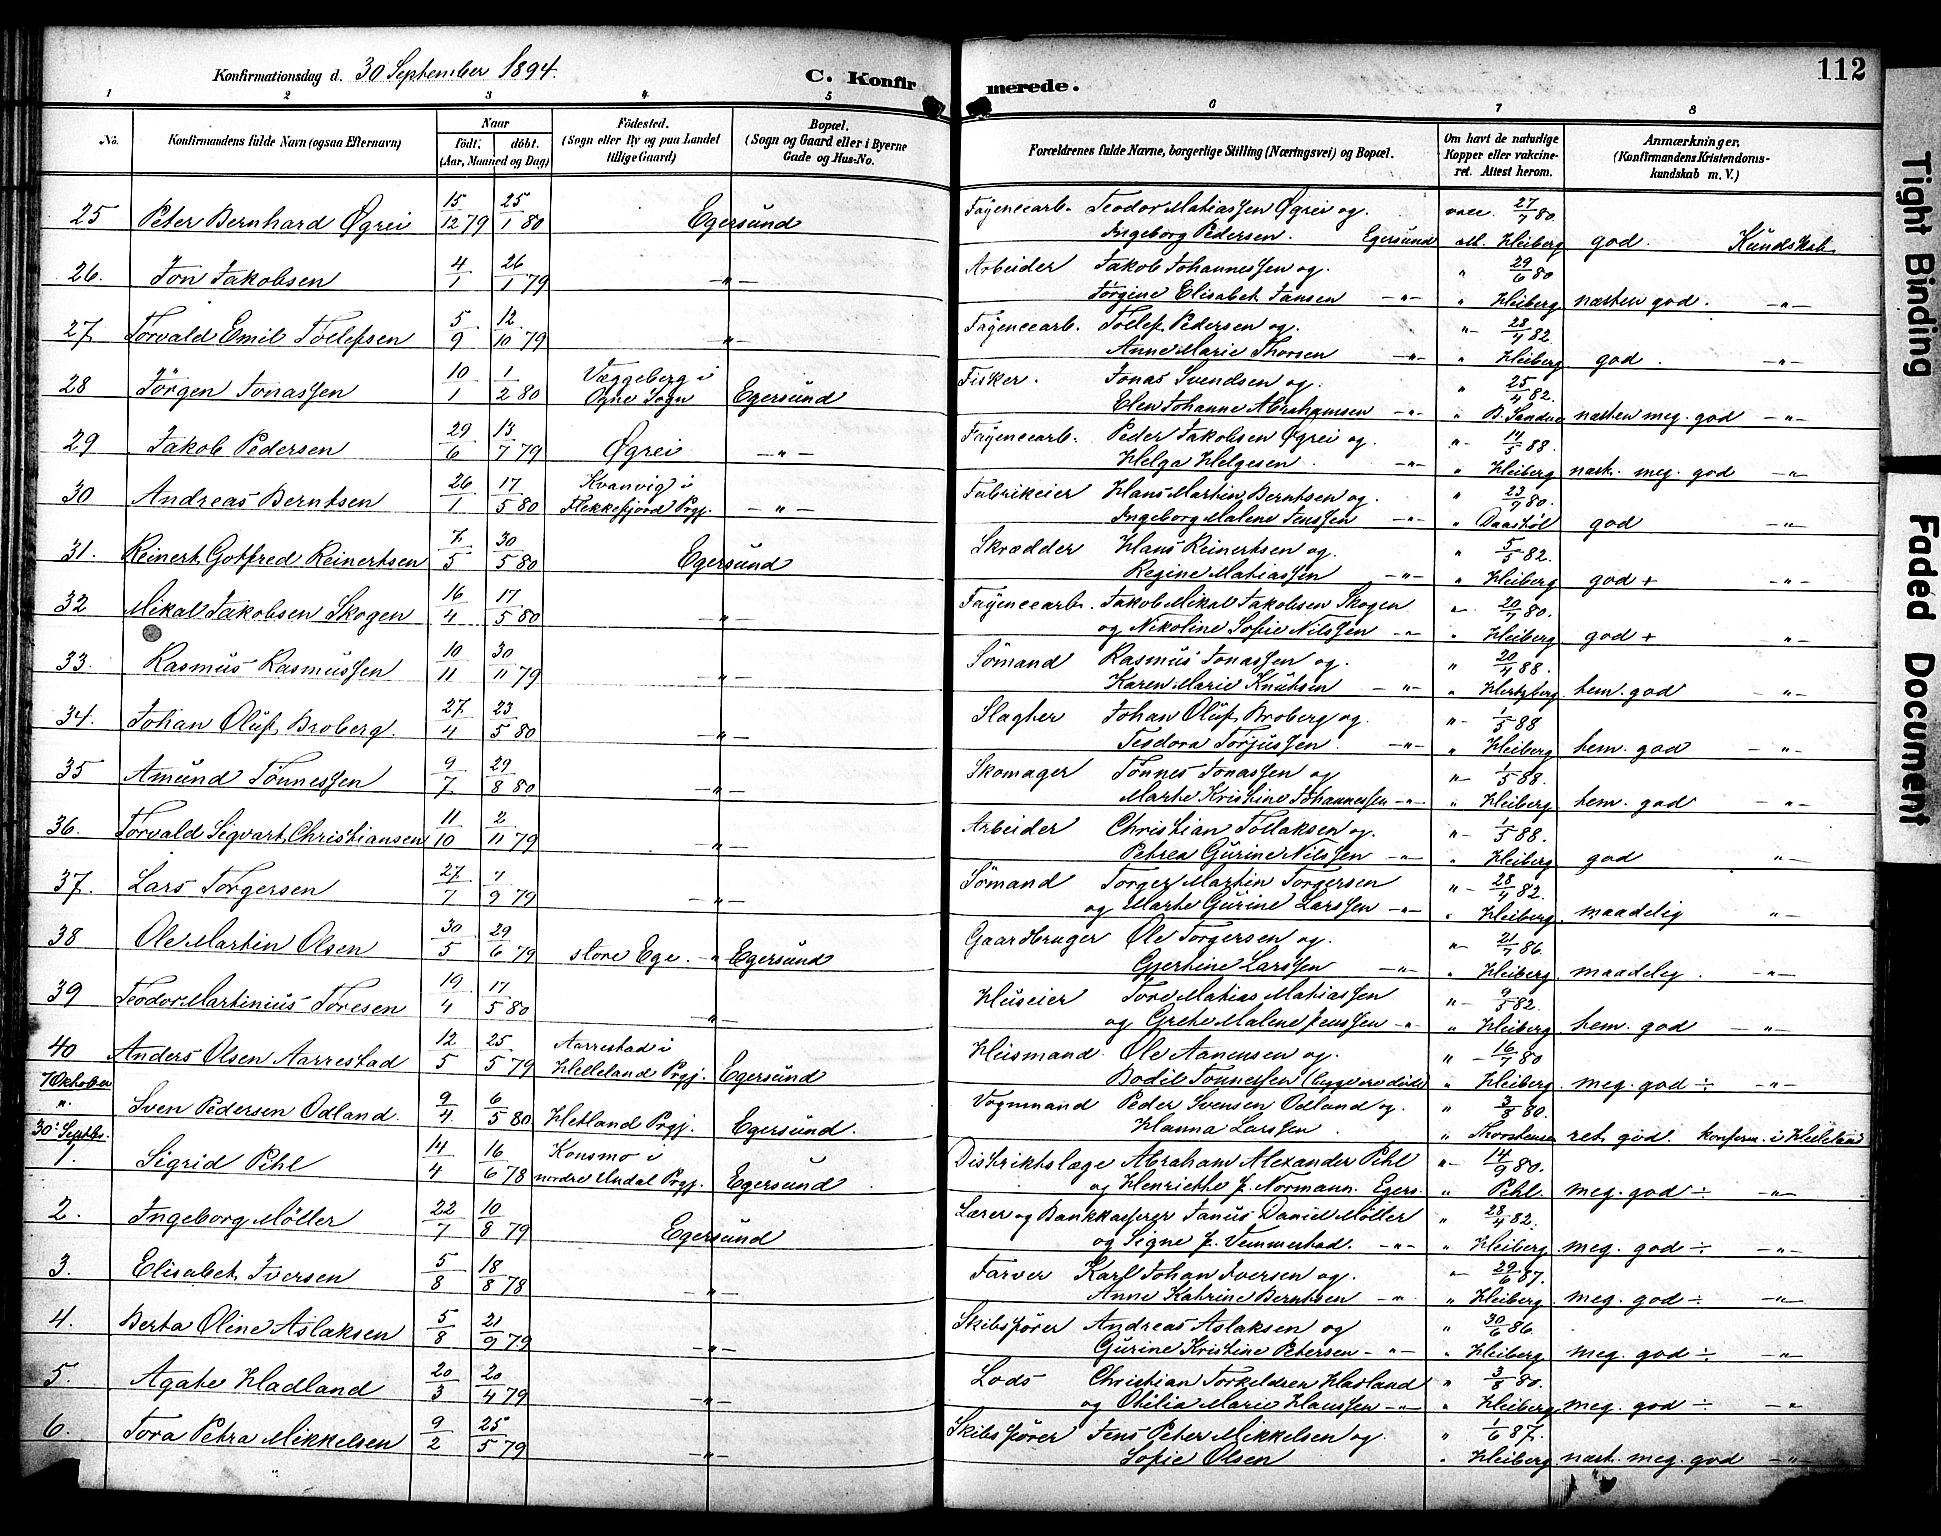 Konfirmationsdag d. 30 September 1894.
C. Konfirmerede.
112
1 2 3 4 5 6 7 8
No. Konfirmandens fulde Navn (ogsaa Efternavn) Naar født. døbt. (Aar, Maaned og Dag) Fødested. (Sogn eller By og paa Landet tillige Gaard) Bopæl. (Sogn og Gaard eller i Byerne Gade og Hus-No. Forældrenes fulde Navne, borgerlige Stilling (Næringsvei) og Bopæl. Om havt de naturlige Kopper eller vakcineret. Attest herom. Anmærkninger. (Konfirmandens Kristendomskundskab m. V.)
25 Peter Bernhard Øgrei 15/12 79 25/1 80 Egersund Fayencearb. Teodor Matiassen Øgrei og vacc. 27/7 80
Ingeborg Pedersen. Egersund att. Heiberg god. Kundskab
26. Jon Jakobsen 4/1 26/1 79 -"- Arbeider Jakob Johannessen og " 29/6 80
Jørgine Elisabet Jansen -"- " Heiberg næsten god. -"-
27 Torvald Emil Tollefsen 5/9 12/10 79 " Fayencearb. Tollef Pedersen og "- 28/4 82
Anne Marie Thorsen -"- " Heiberg god. -"-
28 Jørgen Jonassen 10/1 1/2 80 Væggeberg i Ogne Sogn Egersund Fisker. Jonas Svendsen og " 25/4 82
Elen Johanne Abrahamsen -"- " næsten meg. god -"-
29 Jakob Pedersen 29/6 13/7 79 Øgrei -"- Fayencearb. Peder Jakobsen Øgrei og "- 14/5 88.
Helga Helgesen. -"- " Heiberg næst. meg. god -"-
30 Andreas Berntsen 26/1 17/5 80 Kvanvig i Flekkefjord Prgj. -"- Fabrikeier Hans Martin Berntsen og " 23/9 80.
Ingeborg Malene Jenssen -"- " god -"-
31. Reinert Gotfred Reinertsen 7/5 30/5 80 Egersund Skrædder Hans Reinertsen og " 5/5 82.
Regine Matiassen -"- " Heiberg god + -"-
32 Mikal Jakobsen Skogen 16/4 17/5 80 -"- Fayencearb. Jakob Mikal Jakobsen Skogen "- 20/7 80.
og Nikoline Sofie Nilssen -"- " Heiberg god + "-
33. Rasmus Rasmussen 10/11 30/11 79 -"- Sømand Rasmus Jonassen og " 20/4 88.
Karen Marie Knutsen -"- " Hertzberg hem. god -"-
34. Johan Oluf Broberg. 27/4 23/5 80 -"- Slagter Johan Oluf Broberg og "- 1/5 88
Teodora Torjussen. -"- " Heiberg hem. god -"-
35 Amund Tønnessen 9/7 29/8 80 -"- Skomager Tønnes Jonassen og "- 1/5 88.
Marte Kristine Johannessen -"- " Heiberg hem. god -"-
36. Torvald Sigvart Christiansen 11/10 2/11 79 -"- Arbeider Christian Tollaksen og "- 1/5 88.
Petrea Gurine Nilssen -"- " Heiberg god "-
37. Lars Torgersen 27/7 7/9 79 -"- Sømand Torger Martin Torgersen "- 28/4 82.
og Marte Gurine Larssen -"- " Heiberg maadelig "-
38 Ole Martin Olsen 30/5 29/6 79 store Ege. -" Egersund Gaardbruger Ole Torgersen og "- 21/7 86.
Gjertine Larssen -"- " Heiberg maadelig. -"-
39 Teodor Martinius Toresen 19/4 17/5 80 -"- Huseier Tore Matias Matiassen "- 9/5 82.
og Grete Malene Jenssen -" " Heiberg hem. god -"-
40 Anders Olsen Aarrestad 12/5 25/5 79 Aarrestad i Helleland Prgj. Egersund Heismand. Ole Aanensen og " - 16/7 80
Bodil Tønnessen (begge ere døde) " Heiberg. meg. god ÷ -"-
7 Oktober " Sven Pedersen Odland. 9/4 6/5 80 Hetland Prgj. Egersund. Vognmand Peder Svensen Odland og " 3/8 80.
Hanna Larssen. " Thorstensen ret god. konfirm. i Helleland
30. Septbr.
1. Sigrid Pihl 14/4 16/6 78 Konsmo i nordre Undal Prgj. Egersund Distriktslæge Abraham Alexander Pihl "- 14/9 80.
og Henriette f. Normann. Egers. " Pihl. meg. god ÷ -"-
2. Ingeborg Møller 22/7 10/8 79 Egersund Lærer og Bankkasserer Janus Daniel Møller " 28/4 82.
og Signe f. Vemmestad. -"- " Heiberg. meg. god ÷ -"-
3. Elisabet Iversen 5/8 18/8 78 -"- Farver Karl Johan Iversen og "- 29/6 87.
Anne Katrine Berntsen -"- " Heiberg. meg. god ÷ -"-
4. Berta Oline Aslaksen 5/8 21/9 79 -"- Skibsfører Andreas Aslaksen og " 30/6 86.
Gurine Kristine Petersen -"- " Heiberg. meg. god ÷ -"-
5. Agate Hadland 20/3 20/4 79 -"- Lods Christian Torkeldsen Hadland " 3/8 80.
og Otilia Marie Hanssen -"- " Heiberg meg. god ÷ -"-
6. Tora Petra Mikkelsen 9/2 25/5 79 -"- Skibsfører Jens Peter Mikkelsen og " 1/6 87.
Sofie Olsen " Heiberg. næst. meg. god -"-
Tight Binding
Faded Document